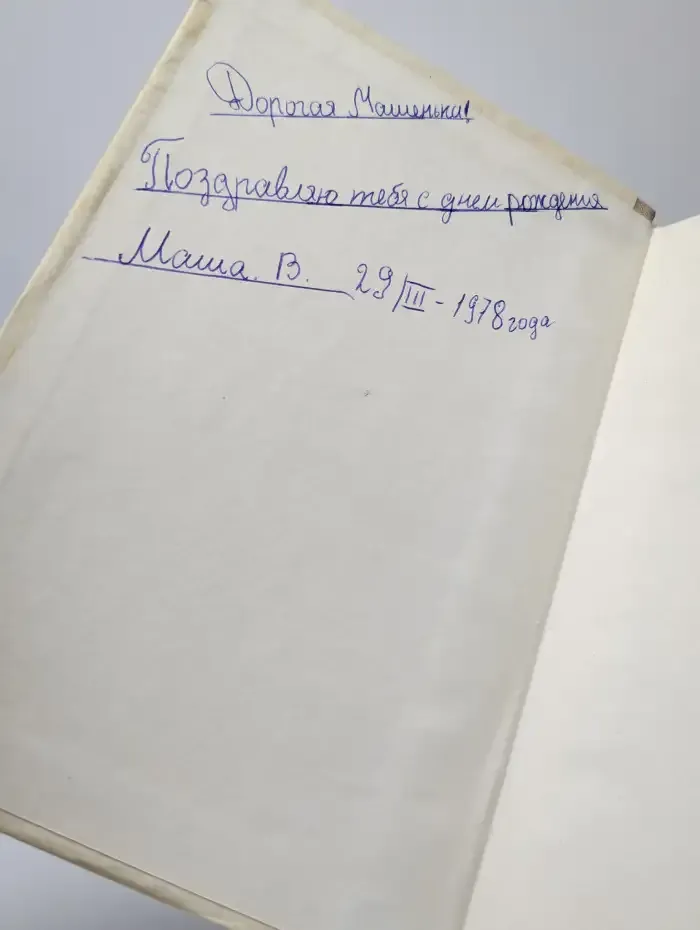 Дорогая Машенька!
Поздравляю тебя с днем рождения
Маша. В. 29/III - 1978 года